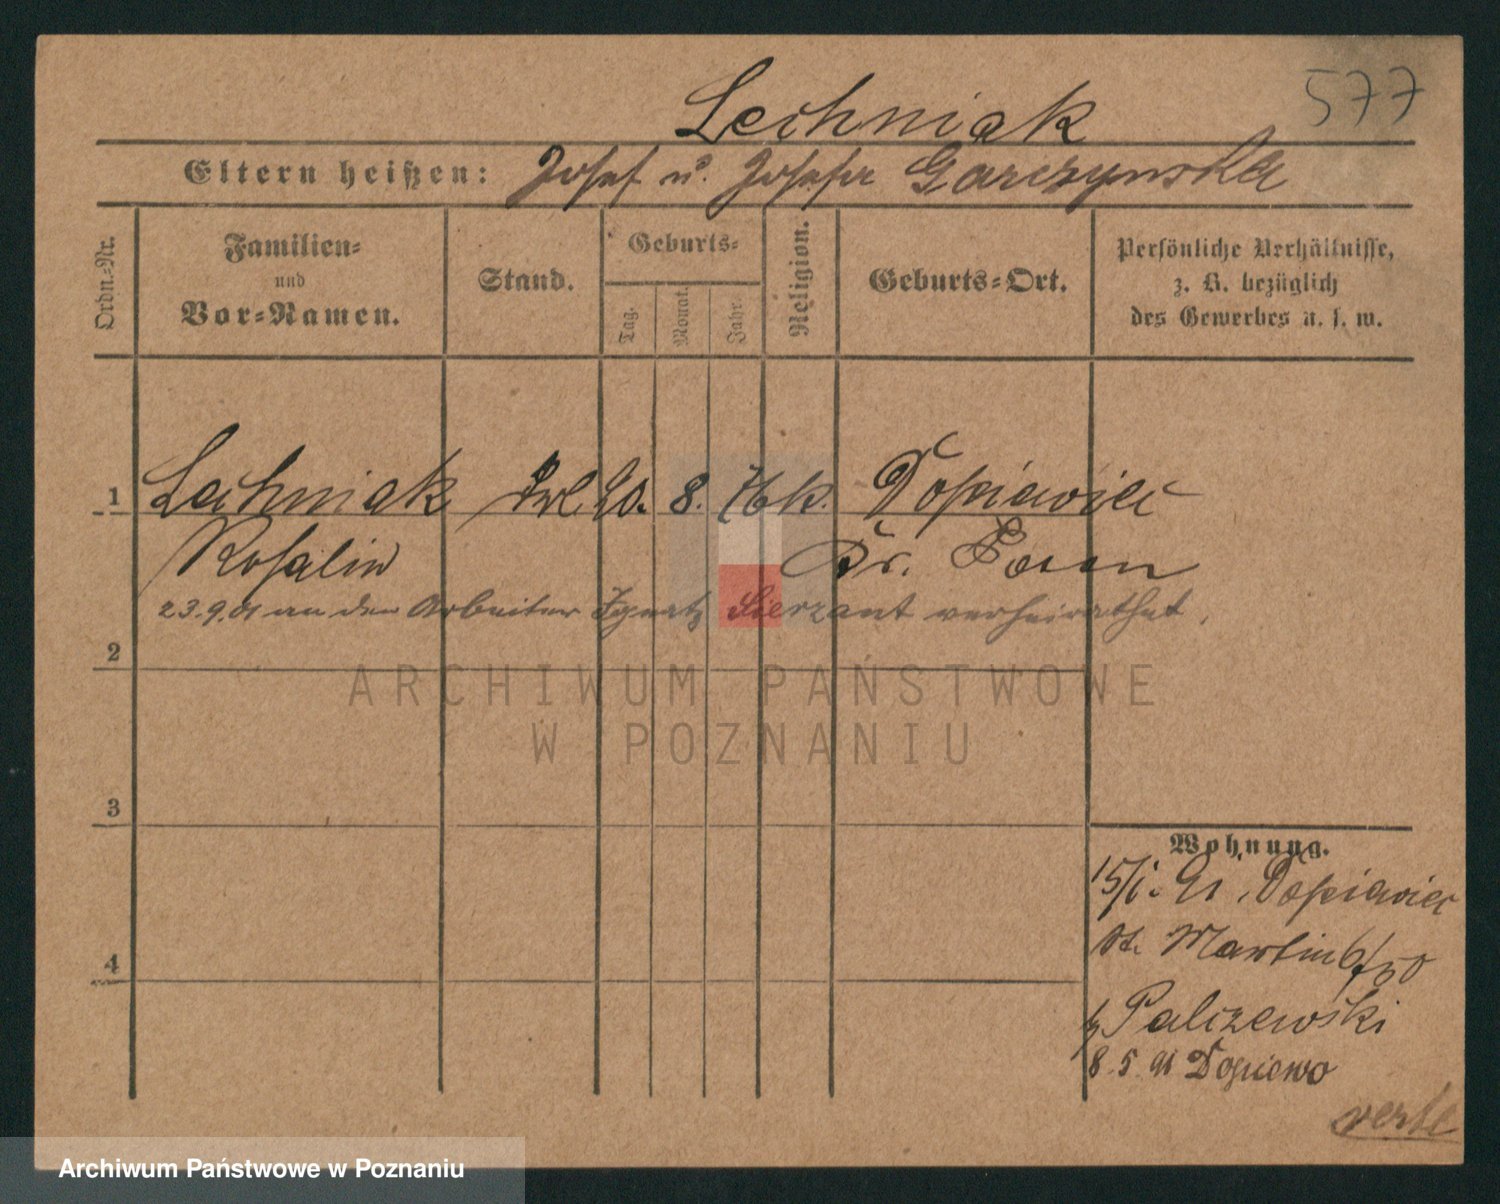 577
Lechniak
Eltern heißen: Josef u. Josefa Garczynska
Ordn.-Nr.
Familien-
und
Vor-Namen.
Stand.
Geburts-
Tag.
Monat.
Jahr.
Religion.
Geburts-Ort.
Persönliche Verhältnisse,
z. B. bezüglich
des Gewerbes u. s. w.
1 Lechniak 20. 8. 76 k. Dopiewiec
Rosalie Kr. Posen
23.9.01 an den Arbeiter Ignatz Sierzant verheirathet.
2
ARCHIWUM PAŃSTWOWE
W POZNANIU
3
4
Wohnung.
15/1. 91. Dopiewiec
St. Martin 6/
Palczewski
8. 5. 91 Dopiewo
verte
Archiwum Państwowe w Poznaniu